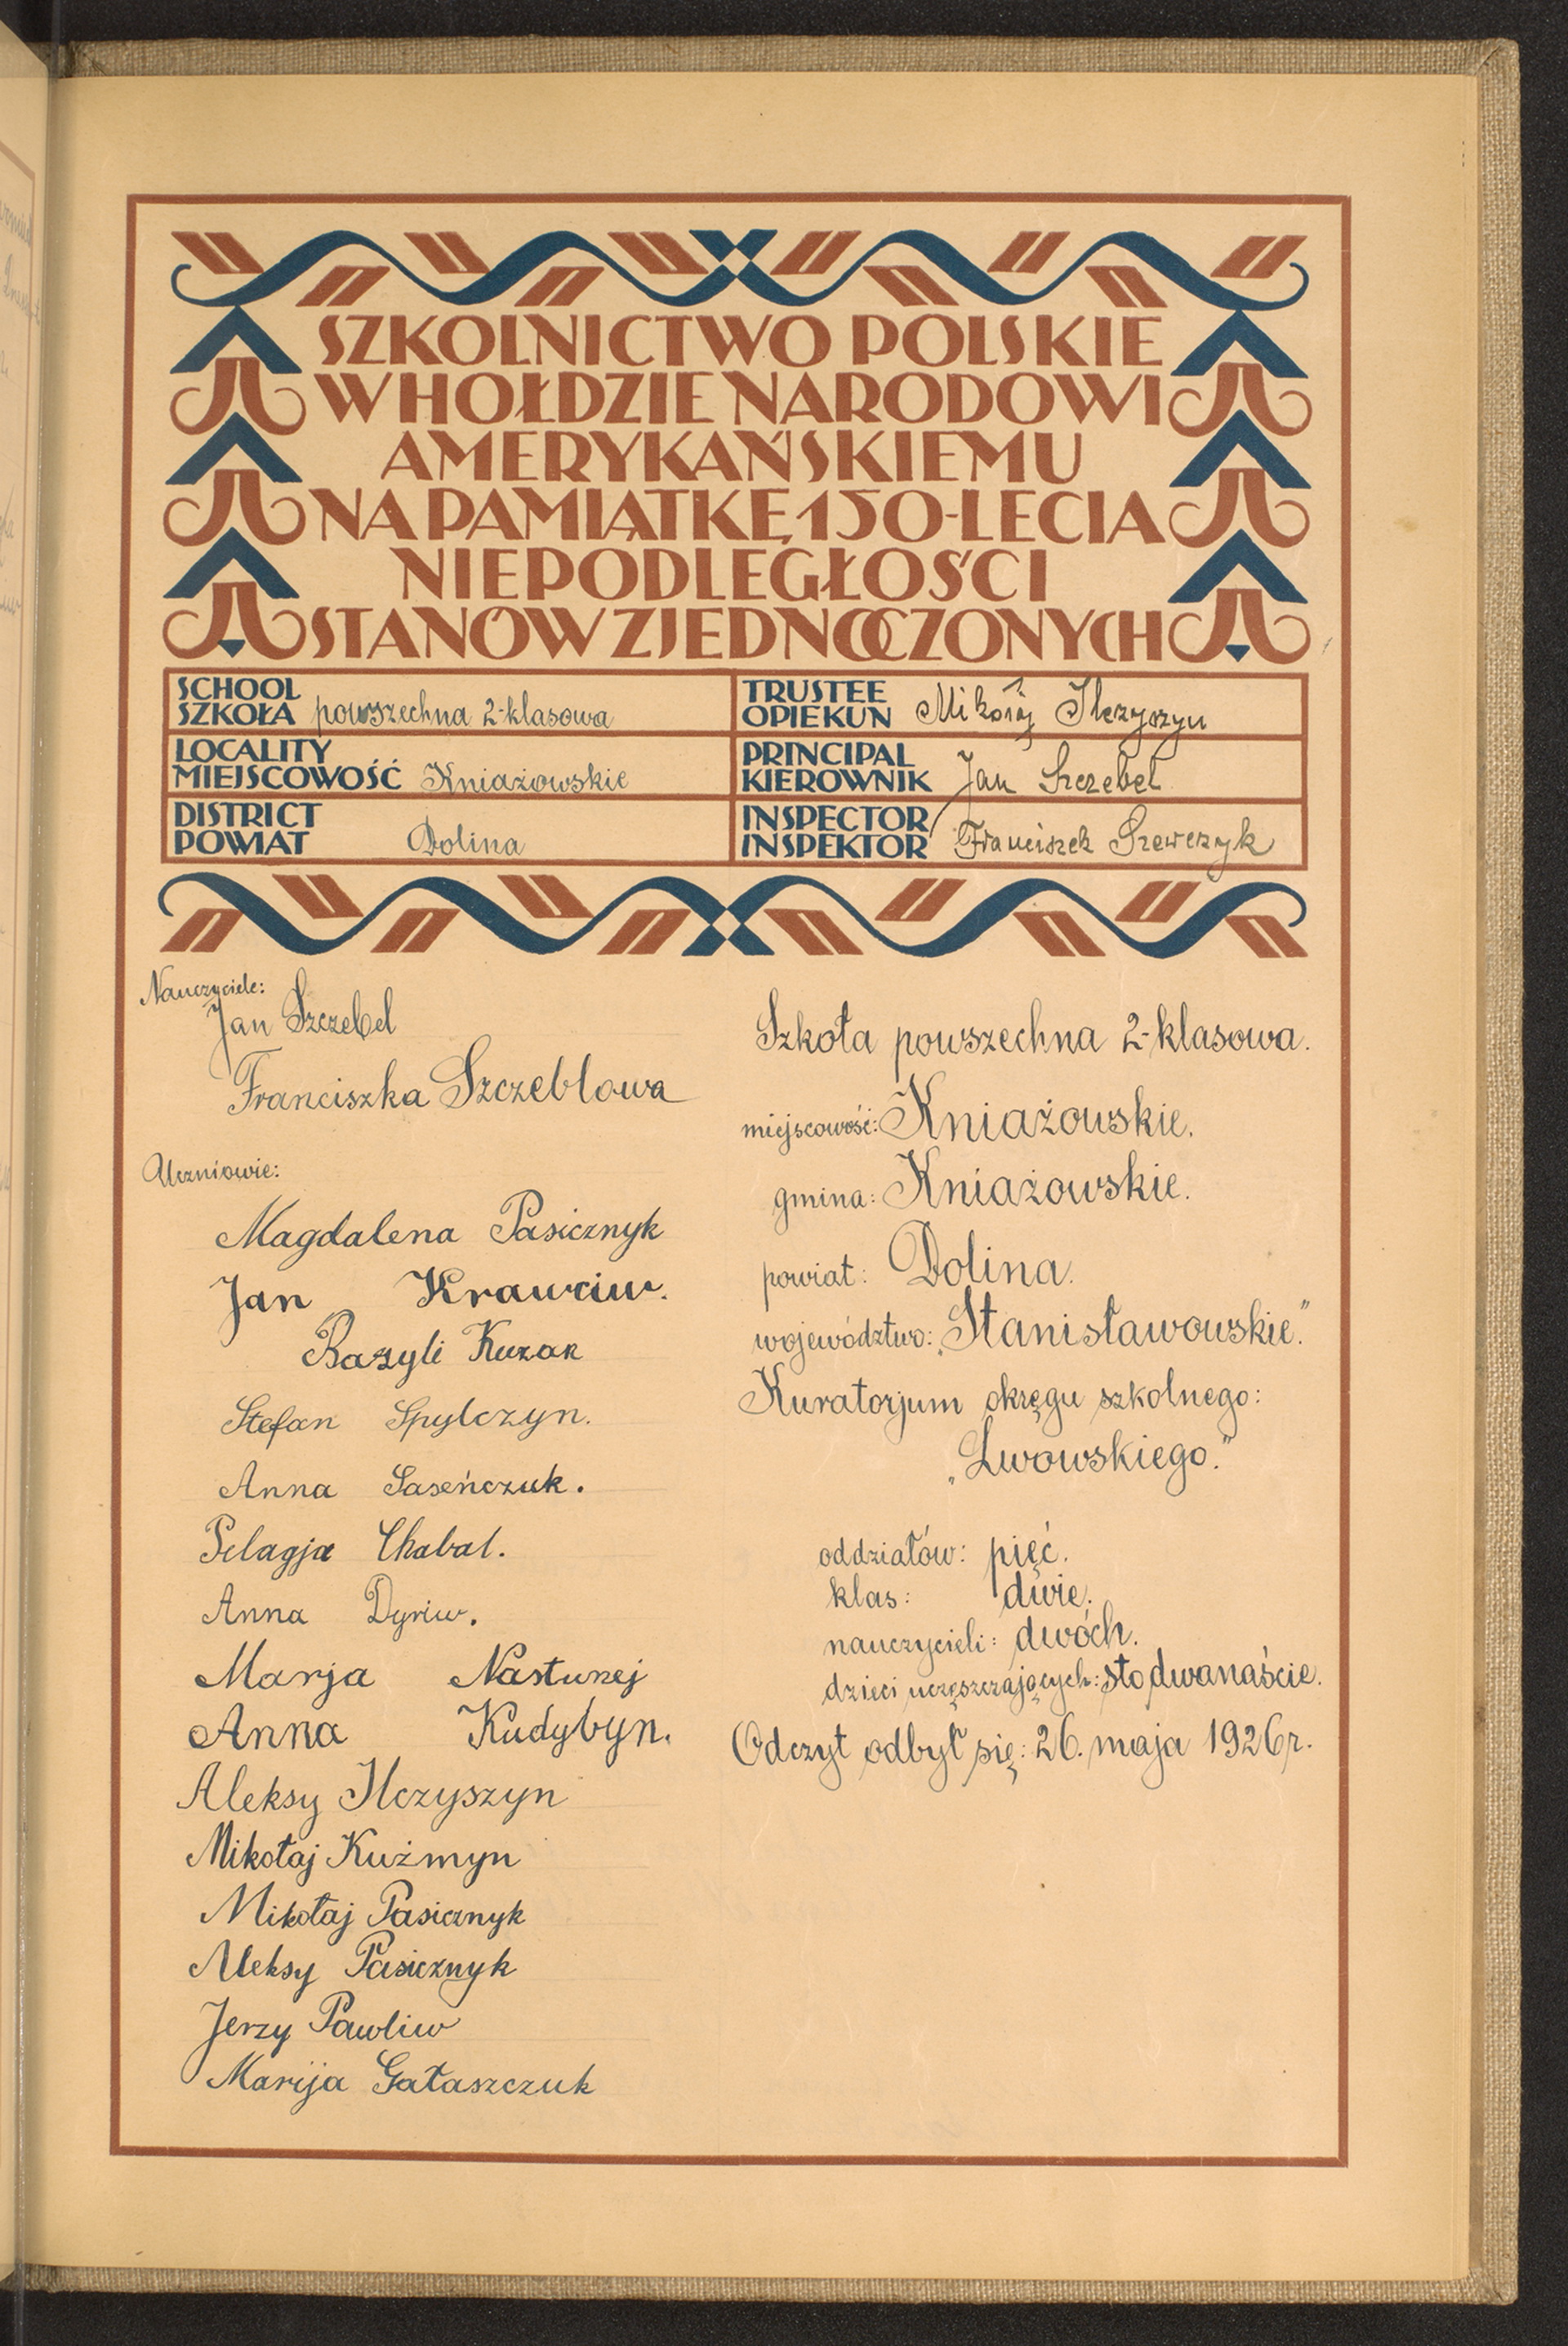 SZKOLNICTWO POLSKIE
W HOŁDZIE NARODOWI
AMERYKAŃSKIEMU
NA PAMIĄTKĘ 150-LECIA
NIEPODLEGŁOŚCI
STANÓW ZJEDNOCZONYCH
SCHOOL
SZKOŁA powszechna 2-klasowa
TRUSTEE
OPIEKUN Mikołaj Ilczyszyn
LOCALITY
MIEJSCOWOŚĆ Kniażowskie
PRINCIPAL
KIEROWNIK Jan Szczebel
DISTRICT
POWIAT Dolina
INSPECTOR
INSPEKTOR Franciszek Szewczyk
Nauczyciele:
Jan Szczebel
Franciszka Szczeblowa
Uczniowie:
Magdalena Pasicznyk
Jan Krawciw.
Bazyli Kuzak
Stefan Spylczyn.
Anna Saseńczuk.
Pelagja Chabal.
Anna Dyriw.
Marja Nasturzej
Anna Kudybyn.
Aleksy Ilczyszyn
Mikołaj Kuźmyn
Mikołaj Pasicznyk
Aleksy Pasicznyk
Jerzy Pawliw
Marija Gałaszczuk
Szkoła powszechna 2-klasowa.
miejscowość: Kniażowskie.
gmina: Kniażowskie.
powiat: Dolina.
województwo: „Stanisławowskie."
Kuratorjum okręgu szkolnego:
„Lwowskiego."
oddziałów: pięć.
klas: dwie.
nauczycieli: dwóch.
dzieci uczęszczających: sto dwanaście.
Odczyt odbył się: 26. maja 1926 r.